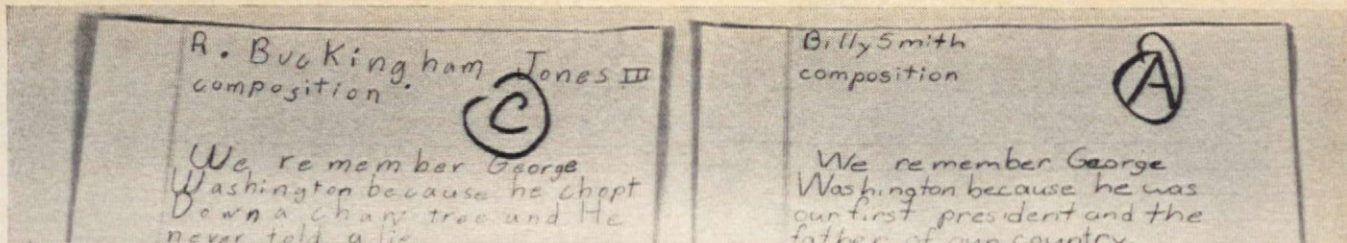 R. BucKingham Jones III
composition.
C
We remember George
Washington because he chopt
Down a chary tree and He
never told a lie
Billy Smith
composition
A
We remember George
Washington because he was
our first president and the
father of our country